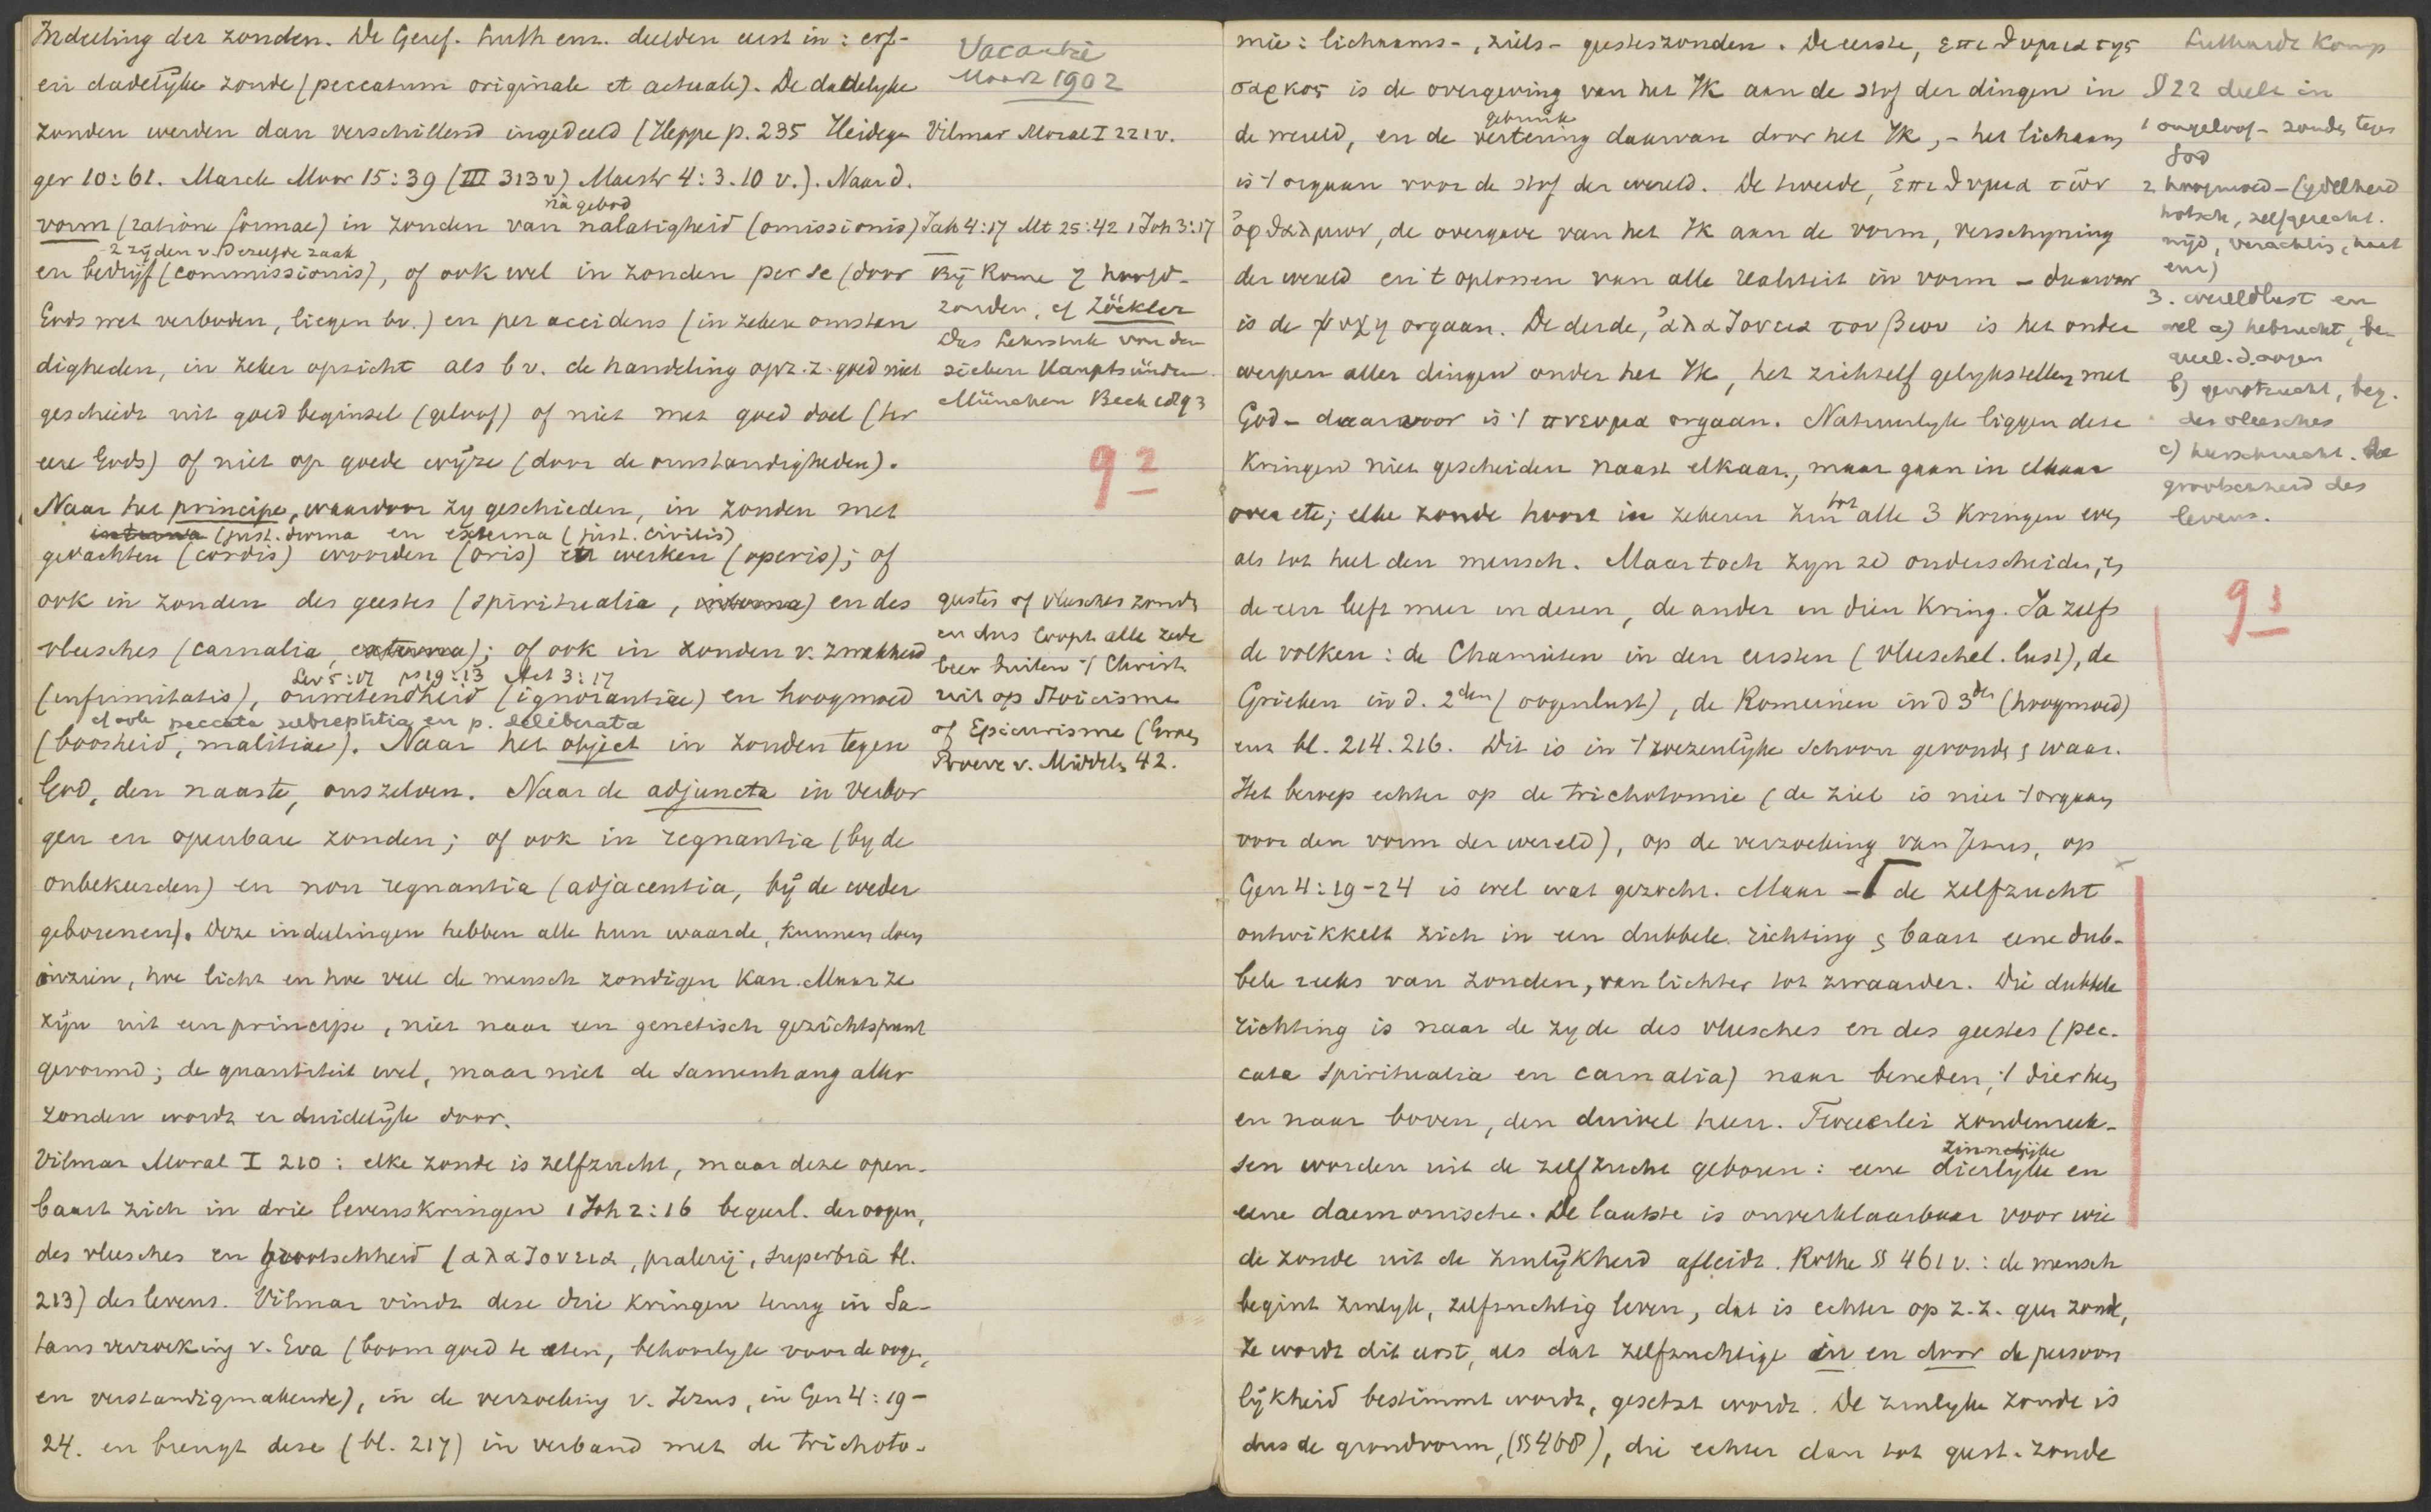 Indeeling der zonden. De Geref. Luth enz. deelden eerst in: erf-
en dadelijke zonde (peccatum originale et actuale). De dadelyke
zonden werden dan verschillend ingedeeld (Heppe p. 235 Heideg
ger 10:61. Marck Moor 15:39 (III 313 v) Maestr 4:3.10 v.). Naar d.
na gebod
vorm (ratione formae) in zonden van nalatigheid (omissionis)
2 zijden v. dezelfde zaak
en bedrijf (commissionis), of ook wel in zonden per se (door
Gods wet verboden, liegen bv.) en per accidens (in zekere omstan
digheden, in zeker opzicht als bv. de handeling op z. z. goed niet
geschiedt uit goed beginsel (geloof) of niet met goed doel (ter
eere Gods) of niet op goede wijze (door de omstandigheden).
Naar het principe, waardoor zy geschieden, in zonden met
interna (just. divina en externa (just. civilis)
gedachten (cordis) woorden (oris) en werken (operis); of
ook in zonden des geestes (spiritualia, interna) en des
vleesches (carnalia, externa); of ook in zonden v. zwakheid
Lev 5:17 ps 19:13 Act 3:17
(infirmitatis), onwetendheid (ignorantiae) en hoogmoed
of ook peccata subreptitia en p. deliberata
(boosheid, malitiae). Naar het object in zonden tegen
God, den naaste, onszelven. Naar de adjuncta in verbor
gen en openbare zonden; of ook in regnantia (by de
onbekeerden) en non regnantia (adjacentia, bij de weder
geborenen). Deze indeelingen hebben alle hun waarde, kunnen doen
inzien, hoe licht en hoe veel de mensch zondigen kan. Maar ze
zijn uit een principe, niet naar een genetisch gezichtspunt
gevormd; de quantiteit wel, maar niet de samenhang aller
zonden wordt er duidelijk door.
Vilmar Moral I 210: elke zonde is zelfzucht, maar deze open-
baart zich in drie levenskringen 1 Joh 2:16 begeerl. der oogen,
des vleesches en grootschheid (αλαζονεια, pralerij, superbia bl.
213) des levens. Vilmar vindt deze drie kringen terug in Sa-
tans verzoeking v. Eva (boom goed te eten, behoorlyk voor de oogen,
en verstandigmakende), in de verzoeking v. Jezus, in Gen 4:19-
24. en brengt deze (bl. 217) in verband met de trichoto-
Vacantie
Maart 1902
Vilmar Moral I 221 v.
Jak 4:17 Mt 25:42 1 Joh 3:17
Bij Rome 7 hoofd-
zonden, cf Zöckler
Das Lehrstück von den
sieben Hauptsünden
München Beck 1893
92
geestes of vleesches zonde
en dus loopt alle zede
leer buiten 't Christ.
uit op Stoicisme
of Epicurisme (Groen
Proeve v. Middel. 42.
mie: lichaams-, ziels- geesteszonden. De eerste, επιθυμια της
σαρκος is de overgeving van het Ik aan de stof der dingen in
gebruik
de wereld, en de vertering daarvan door het Ik, - het lichaam
is 't orgaan voor de stof der wereld. De tweede, επιθυμια των
οφθαλμων, de overgave van het Ik aan de vorm, verschyning
der wereld en 't oplossen van alle realiteit in vorm - daarvoor
is de ψυχη orgaan. De derde, αλαζονεια του βιου is het onder
werpen aller dingen onder het Ik, het zichzelf gelykstellen met
God - daarvoor is 't πνευμα orgaan. Natuurlyk liggen deze
kringen niet gescheiden naast elkaar, maar gaan in elkaar
over etc; elke zonde hoort in zekeren zin tot alle 3 kringen even
als tot heel den mensch. Maar toch zyn ze onderscheiden, en
de een leeft meer in dezen, de ander in dien kring. Ja zelfs
de volken: de Chamieten in den eersten (vleeschel. lust), de
Grieken in d. 2den (oogenlust), de Romeinen in d 3den (hoogmoed)
enz bl. 214. 216. Dit is in 't wezenlijke schoon gevonden & waar.
Het beroep echter op de trichotomie (de ziel is niet 't orgaan
voor den vorm der wereld), op de verzoeking van Jezus, op
Gen 4:19-24 is wel wat gezocht. Maar - de zelfzucht
ontwikkelt zich in een dubbele richting & baart eene dub-
bele reeks van zonden, van lichter tot zwaarder. Die dubbele
richting is naar de zyde des vleesches en des geestes (pec-
cata spiritualia en carnalia) naar beneden, 't dier heen
en naar boven, den duivel heen. Tweeërlei zondenreek-
sen worden uit de zelfzucht geboren: eene dierlyke en
zinnelijke
eene daemonische. De laatste is onverklaarbaar voor wie
de zonde uit de zinlijkheid afleidt. Rothe §§ 461 v.: de mensch
begint zinlyk, zelfzuchtig leven, dat is echter op z. z. geen zonde,
ze wordt dit eerst, als dat zelfzuchtige in en door de persoon
lijkheid bestimmt wordt, gesetzt wordt. De zinlyke zonde is
dus de grondvorm, (§§ 468), die echter dan tot geest. zonde
Luthardt Komp
§ 22 deelt in
1 ongeloof - zonden tegen
God
2 hoogmoed - (ydelheid
trotsch, zelfgerecht.
nijd, verachting, haat
enz)
3. wereldlust en
wel a) hebzucht, be-
geerl. d. oogen
b) genotzucht, beg.
des vleesches
c) heerschzucht. de
grootschheid des
levens.
93